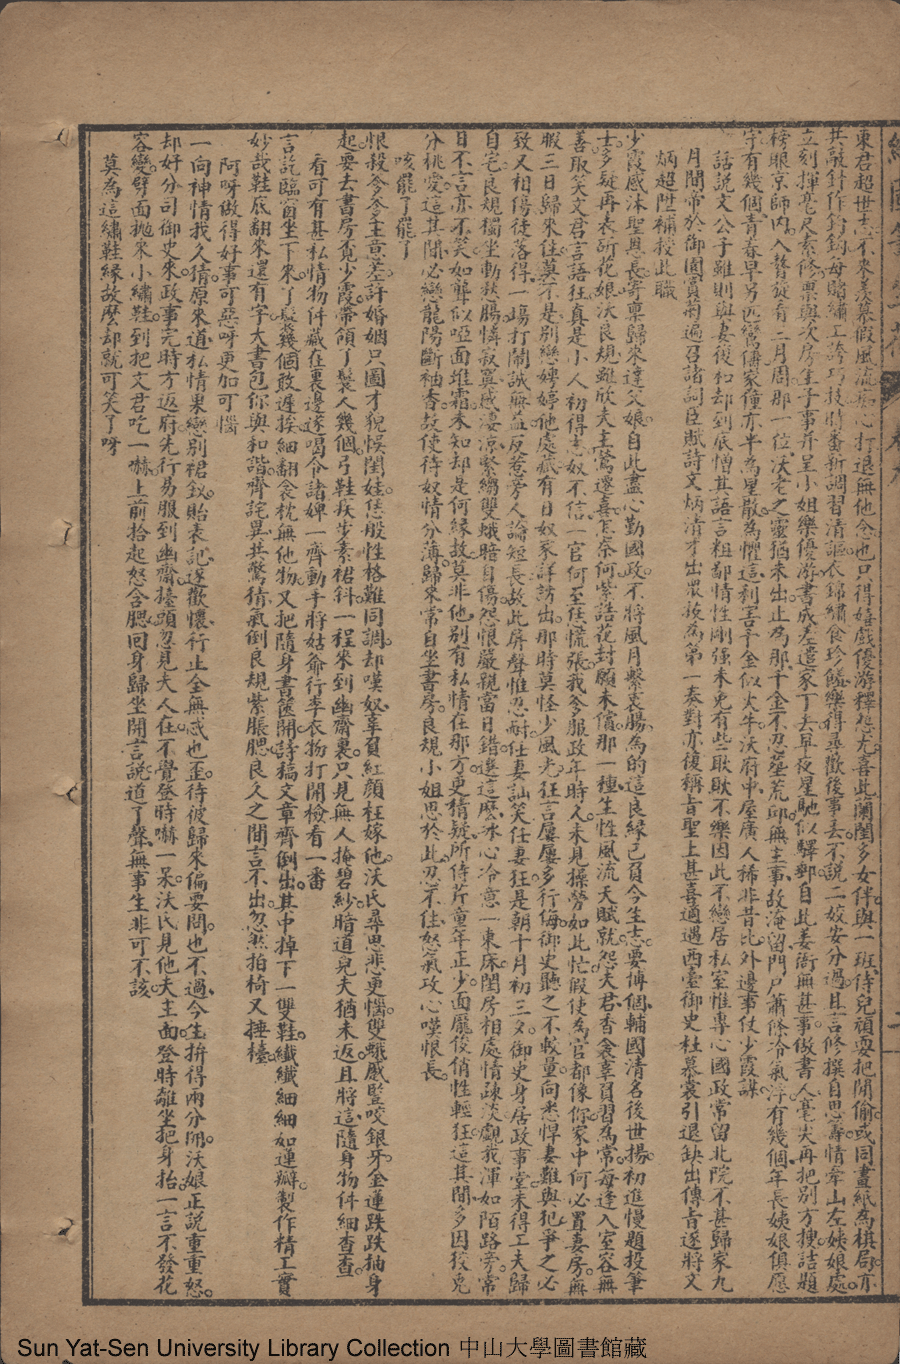 東君超世志不來羨慕假風流痴心打退無他念也只得嬉戲優游釋悲尤喜此蘭閨多女伴與一班侍兒頑耍把閒偷或同畫紙為棋局亦
共敲針作釣鈎每賭繡工誇巧技時番新調習清謳衣錦繡食珍饈樂得尋歡後事丟不說二姣安分過且言修撰自思籌情牽山左姨娘處
立刻揮毫尺素修票與次房生子事并呈小姐樂優游書成差遣家丁去早夜星馳似驛郵自此姜衙無甚事做書人毫尖再把別方搜話題
榜眼京師內入贅從有二月周那一位沃老之靈猶未出止為那千金不忍塟荒邱無主事故淹留門戶蕭條冷氣浮有幾個年長姨娘俱愿
守有幾個青春早另匹鸞儔家僮亦半為星散為懼這利害千金似火牛沃府中屋廣人稀非昔比外邊事仗少霞謀
話說文公子雖則與妻復和却到底憎其語言粗鄙情性剛强未免有些耿耿不樂因此不戀居私室惟專心國政常留北院不甚歸家九
月間帝於御園賞菊遍召諸詞臣賦詩文炳清才出眾拔為第一奏對亦復稱旨聖上甚喜適遇西臺御史杜慕裳引退缺出傳旨逐將文
炳超陞補授此職
少霞感沐聖恩長寄稟歸來達父娘自此盡心勤國政不將風月繫衷腸為的這良緣已負今生志要博個輔國清名後世揚初進慢題投筆
士多疑再表折花娘沃良規雖欣夫主鶯遷喜怎奈何紫誥花封願未償那一種生性風流天賦就怨夫君香衾辜負習為常每逢入室容無
善取笑文君言語狂真是小人初得志奴不信一官何至恁慌張我爹服政年時久未見操勞如此忙假使為官都像你家中何必置妻房無
暇三日歸來住莫不是別戀娉婷他處藏有日奴家詳訪出那時莫怪少風光狂言屢屢多行侮御史聽之不較量向悉悍妻難與犯爭之必
致又相傷徒落得一塲打鬧誠無益反惹旁人論短長故此屏聲惟忍耐仕妻訕笑任妻狂是朝十月初三夕御史身居政事堂未得工夫歸
自宅良規獨坐動愁腸憐寂寞感凄凉緊縐雙蛾暗自傷怨恨嚴親當日錯選這麽冰心冷意一東床閨房相處情疎淡觀我渾如陌路旁常
日不言亦不笑如聾似啞面堆霜未知却是何緣故莫非他別有私情在那方更猜疑所侍芹童年正少面龐俊俏性輕狂這其間多因狡兔
分桃愛這其間必戀龍陽斷袖香故使待奴情分薄歸來常自坐書房良規小姐思於此忍不住怒氣攻心嘆恨長
咳罷了罷了
恨殺爹爹主意差許婚姻只圖才貌悞閨娃恁般性格難同調却嘆奴辜負紅顔枉嫁他沃氏尋思悲更惱雙蛾戚豎咬銀牙金蓮跌跌抽身
起要去書房覓少霞帶領了鬟人幾個弓鞋疾步素裙斜一程來到幽齋裏只見無人掩碧紗暗道兒夫猶未返且將這隨身物件細查查
看可有甚私情物件藏在裏邊遂喝令諸婢一齊動手將姑爺行李衣物打開檢看一番
言訖臨窗坐下來了鬟幾個敢遲挨細翻衾枕無他物又把隨身書篋開詩稿文章齊倒出其中掉下一雙鞋纖纖細細如蓮瓣製作精工實
妙哉鞋底翻來還有字大書包你與和諧齊詫異共驚猜氣倒良規紫脹腮良久之間言不出忽然拍椅又捶檯
阿呀做得好事可惡呀更加可惱
一向神情我久猜原來道私情果戀別裙釵貽表記遂歡懷行止全無忒也歪待彼歸來偏要問也不過今生拚得兩分開沃娘正說重重怒
却好分司御史來政事完時方返府先行易服到幽齋擡頭忽見夫人在不覺登時嚇一呆沃氏見他夫主面登時離坐把身抬一言不發花
容變劈面抛來小繡鞋到把文君吃一嚇上前拾起怒含腮回身歸坐開言說道了聲無事生非可不該
莫為這繡鞋緣故麽却就可笑了呀
Sun Yat-Sen University Library Collection 中山大學圖書館藏